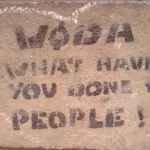 WODA
WHAT HAVE
YOU DONE
PEOPLE !